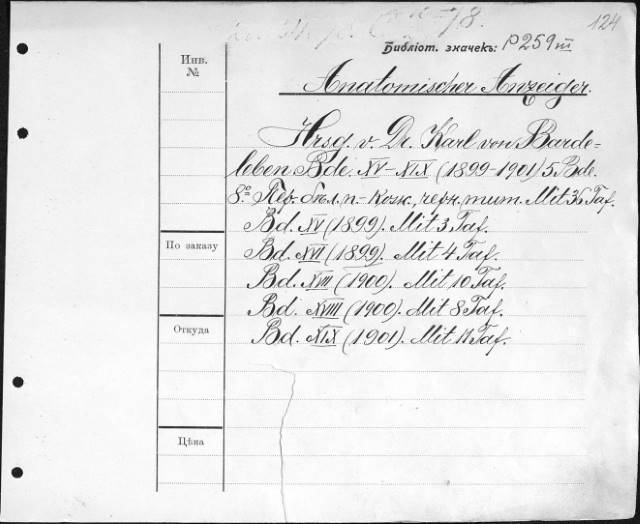 124
Библіот. значекъ: P259III
Инв.
№
Anatomischer Anzeiger.
Hrsg. v. Dr. Karl von Barde-
leben Bde. XV-XIX (1899-1901) 5 Bde.
8º Пер. бѣл. п.-кожк., черн. тит. Mit 36 Taf.
Bd. XV (1899). Mit 3 Taf.
По заказу
Bd. XVI (1899). Mit 4 Taf.
Bd. XVII (1900). Mit 10 Taf.
Bd. XVIII (1900). Mit 8 Taf.
Откуда
Bd. XIX (1901). Mit 11 Taf.
Цѣна